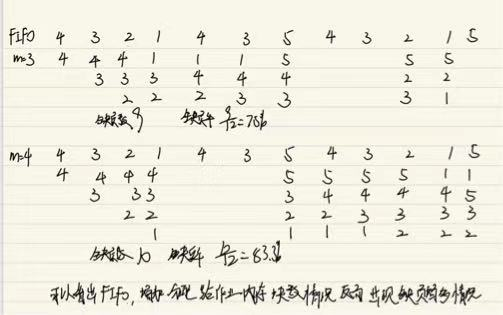 FIFO 4 3 2 1 4 3 5 4 3 2 1 5
m=3 4 4 4 1 1 1 5 5 5
3 3 3 4 4 4 2 2
2 2 2 3 3 3 1
缺页数 9 缺页率 9/12=75%
m=4 4 3 2 1 4 3 5 4 3 2 1 5
4 4 4 4 5 5 5 5 1 1
3 3 3 3 4 4 4 4 5
2 2 2 2 3 3 3 3
1 1 1 1 2 2 2
缺页数 10 缺页率 10/12=83.3%
可以看出FIFO,增加分配给作业内存块数情况反而出现缺页增多情况